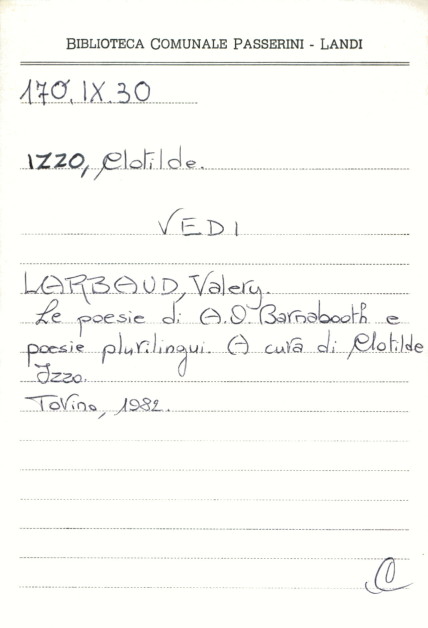 BIBLIOTECA COMUNALE PASSERINI - LANDI
170.IX.30
IZZO, Clotilde.
VEDI
LARBAUD, Valery.
Le poesie di A.O. Barnabooth e
poesie plurilingui. A cura di Clotilde
Izzo.
Torino, 1982.
C